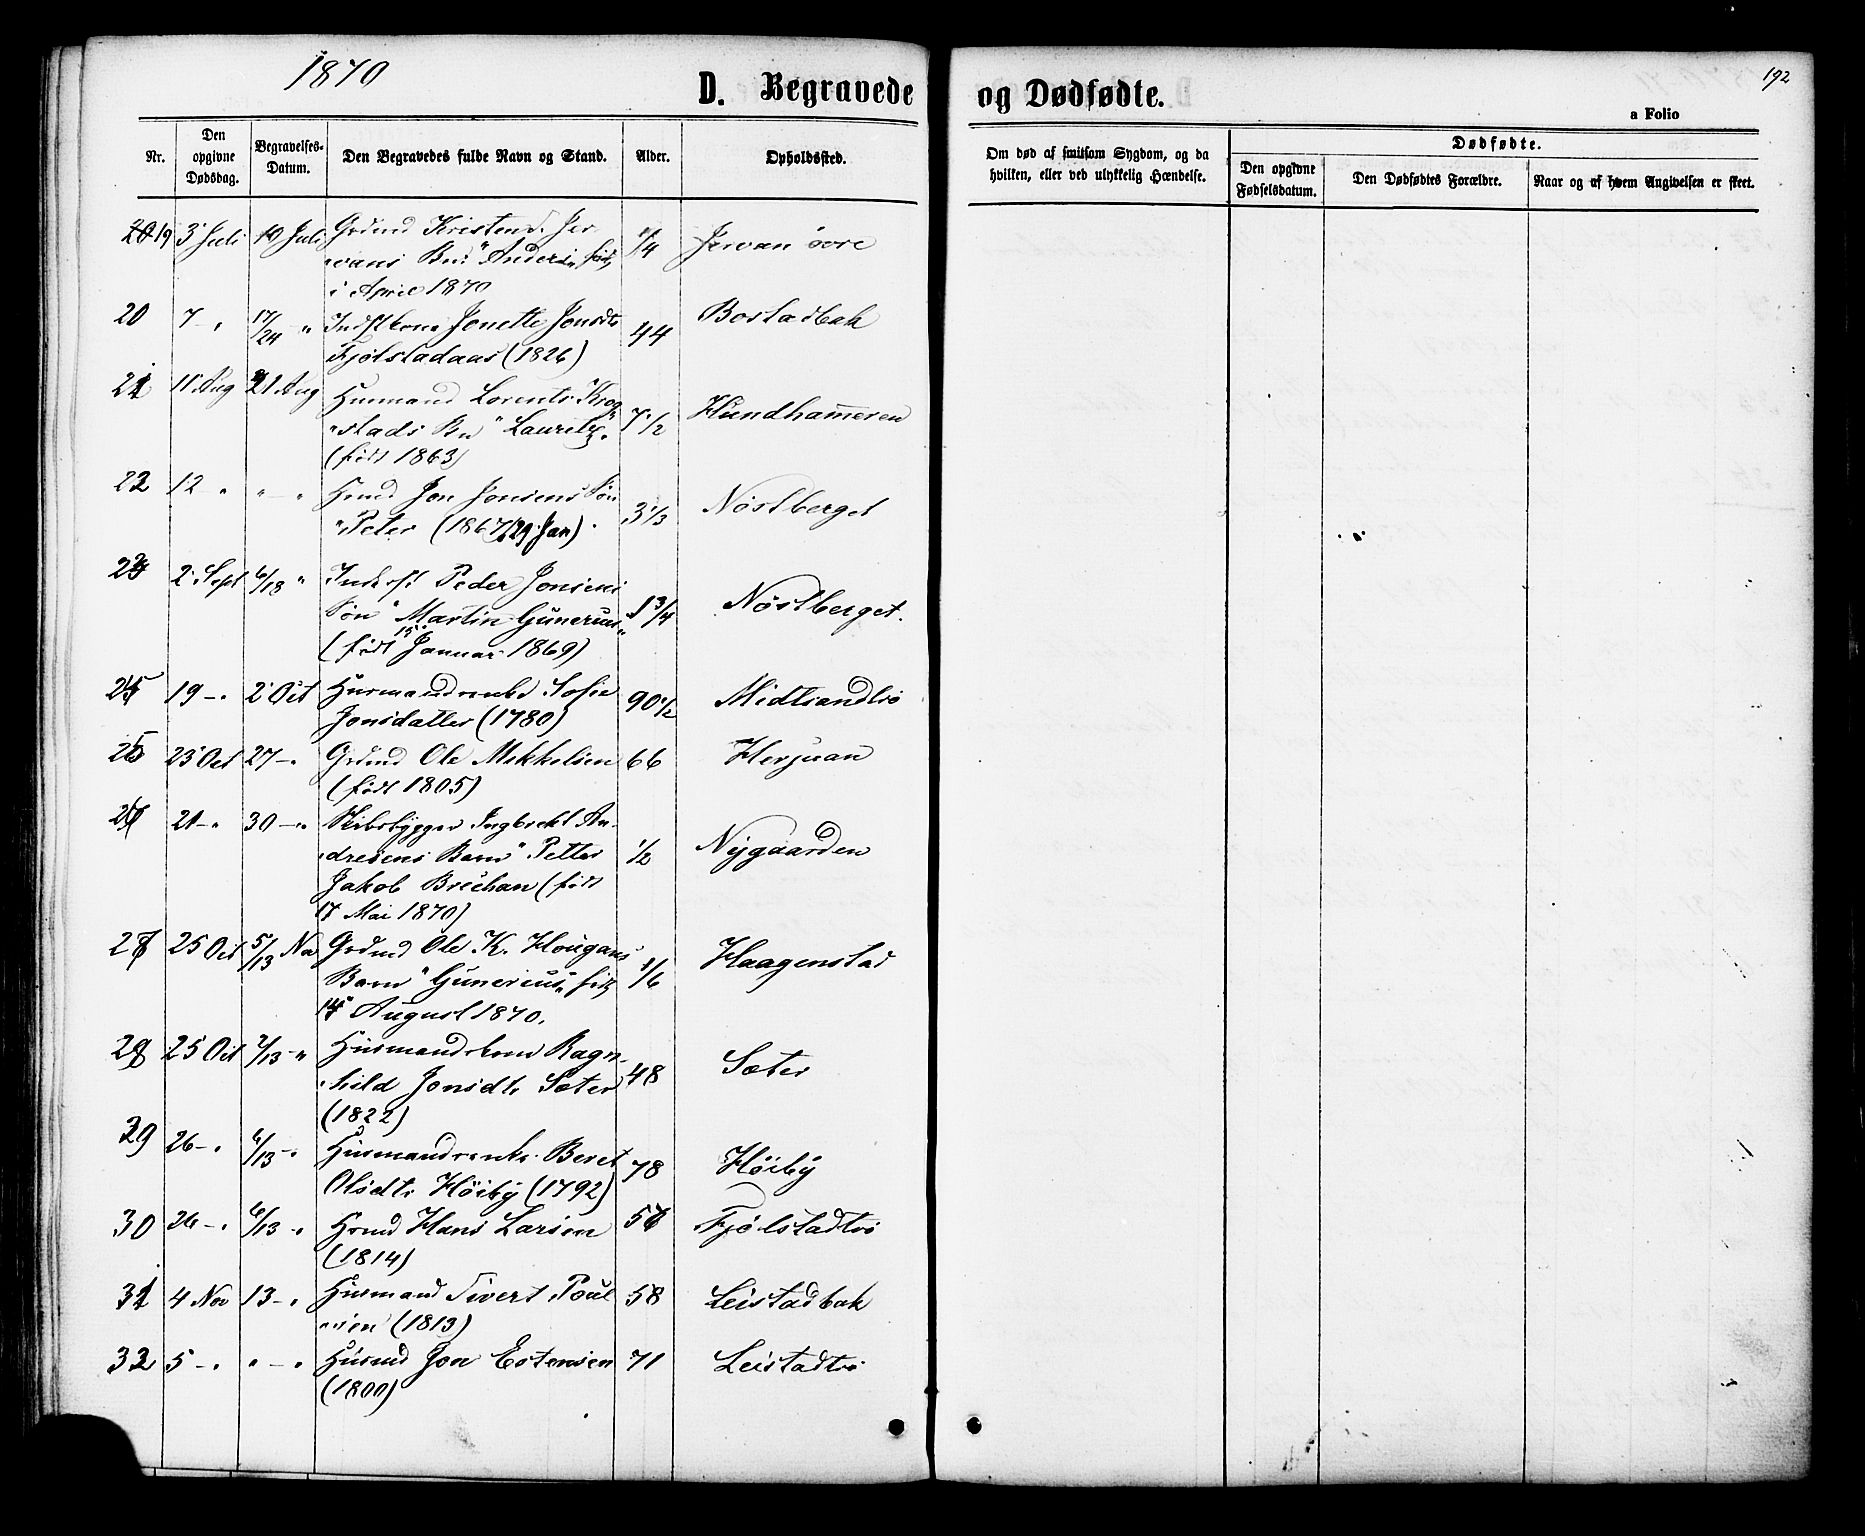 1870
192
D. Begravede og Dødfødte.
a Folio
Nr.
Den opgivne Dødsdag.
Begravelses-Datum.
Den Begravedes fulde Navn og Stand.
Alder.
Opholdssted.
Om død af smitsom Sygdom, og da hvilken, eller ved ulykkelig Hændelse.
Dødfødte.
Den opgivne Fødselsdatum.
Den Dødfødtes Forældre.
Naar og af hvem Angivelsen er skeet.
19 3 Juli 10 Juli Grdmd Kristen J. Jer 1/4 Jervan øvre
vans Bn: "Anders" fød
i April 1870
20 7 - " 17/24 " Indstkone Jonette Jonsdt 44 Bostadbak
Fjølstadaas (1826)
21 11 Aug 21 Aug Husmand Lorents Krog 7 1/2 Hundhammeren
"stads Bn "Lauritz"
(født 1863)
22 12 " " - " Hsmd Jon Jonsens Søn 3 1/3 Nøstberget
"Peter (1867 29 Jan)
23 2 Sept 6/18 " Inderst Peder Jonsens 1 3/4 Nøstberget.
Søn "Martin Gunerius"
(født 15 Januar 1869)
24 19 - " 2 Oct Husmandsenke Sofie 90 1/2 Midtsandtrø
Jonsdatter (1780)
25 23 Oct 27 - " Grdmd Ole Mikkelsen 66 Herjuan
(født 1805)
26 21 - " 30 - " Skibsbygger Ingbrekt An- 1/2 Nygaarden
dresens Barn "Petter
Jakob Brechan (født
17 Mai 1870)
27 25 Oct 5/13 Nov Grdmd Ole K. Hougans 1/6 Haagenstad
Barn "Gunerius" fød
14 August 1870.
28 25 Oct 7/13 - " Husmandskone Ragn- 48 Sæter
hild Jonsdtr Sæter
(1822)
29 26 - " 6/13 - " Husmandsenke Beret 78 Høiby
Olsdtr Høiby (1792)
30 26 - " 6/13 - " Hsmd Hans Larsen 56 Fjølstadtrø
(1814)
31 4 Nov 13 - " Husmand Sivert Poul 58 Leistadbak
"sen (1813)
32 5 - " " - " Husmd Jon Estensen 71 Leistadtrø
(1800)